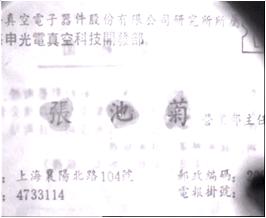 真空電子器件股份有限公司研究所所屬
申光電真空科技開發部
張 池 菊
主任
上海襄陽北路104號 郵政編碼:
4733114 電報掛號: